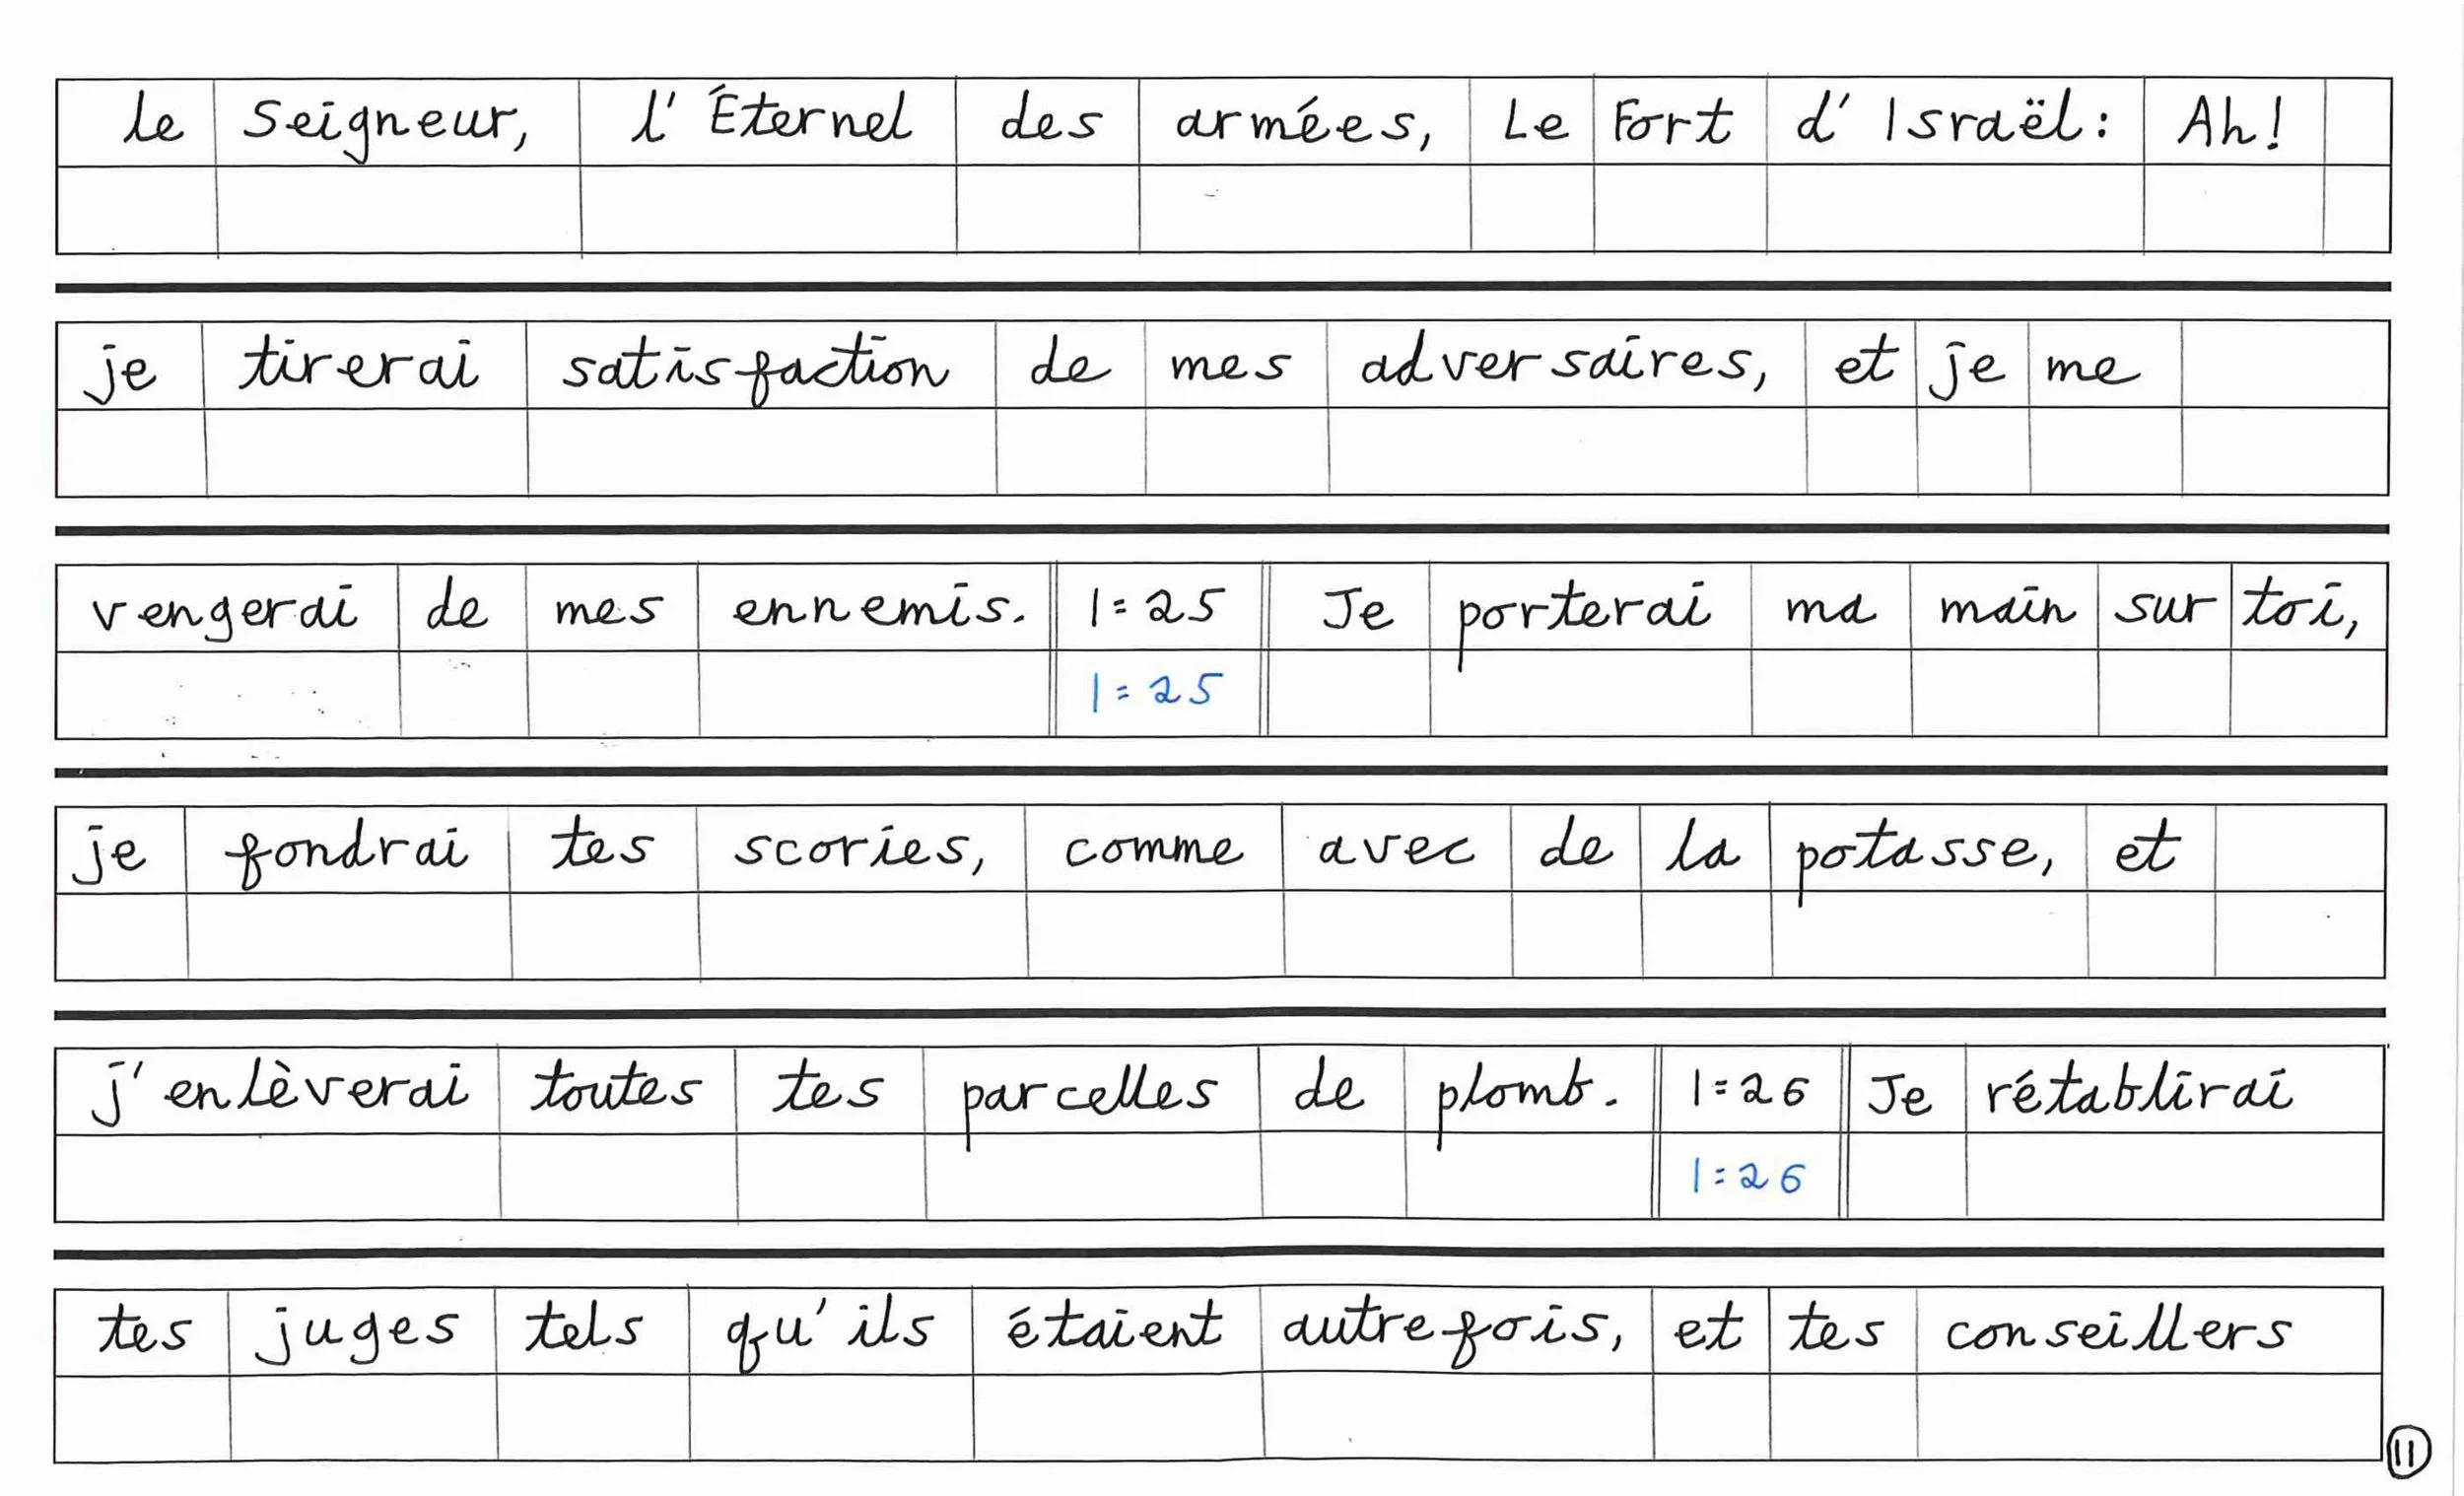 le Seigneur, l'Éternel des armées, Le Fort d'Israël: Ah!
je tirerai satisfaction de mes adversaires, et je me
vengerai de mes ennemis. 1=25 Je porterai ma main sur toi,
1=25
je fondrai tes scories, comme avec de la potasse, et
j'enlèverai toutes tes parcelles de plomb. 1=26 Je rétablirai
1=26
tes juges tels qu'ils étaient autrefois, et tes conseillers
11